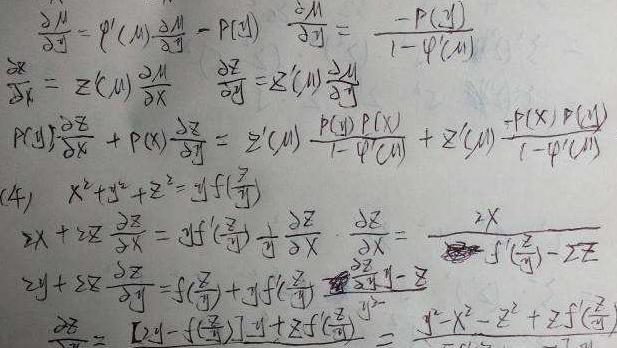 ∂μ/∂y = φ'(μ) ∂μ/∂y - P(y)   ∂μ/∂y = -P(y) / (1-φ'(μ))
∂z/∂x = z'(μ) ∂μ/∂x   ∂z/∂y = z'(μ) ∂μ/∂y
P(y) ∂z/∂x + P(x) ∂z/∂y = z'(μ) P(y)P(x) / (1-φ'(μ)) + z'(μ) -P(x)P(y) / (1-φ'(μ))
(4) x²+y²+z² = y f(z/y)
2x + 2z ∂z/∂x = y f'(z/y) 1/y ∂z/∂x . ∂z/∂x = 2x / (f'(z/y) - 2z)
2y + 2z ∂z/∂y = f(z/y) + y f'(z/y) (∂z/∂y y - z) / y²
∂z/∂y = [2y - f(z/y)] y + z f'(z/y) = y² - x² - z² + z f'(z/y)